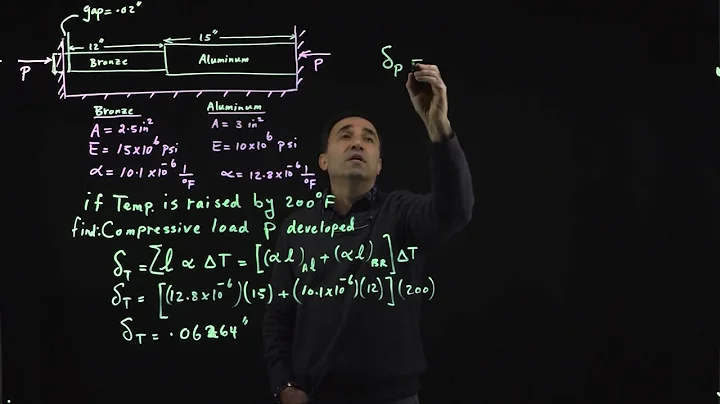 gap=.02"
12"
15"
Bronze
Aluminum
P
P
Bronze
A = 2.5 in²
E = 15x10⁶ psi
α = 10.1x10⁻⁶ 1/°F
Aluminum
A = 3 in²
E = 10x10⁶ psi
α = 12.8x10⁻⁶ 1/°F
if Temp. is raised by 200°F
find: Compressive load P developed
δ_T = Σ l α ΔT = [(αl)_Al + (αl)_BR] ΔT
δ_T = [(12.8x10⁻⁶)(15) + (10.1x10⁻⁶)(12)](200)
δ_T = .06264"
δ_P =